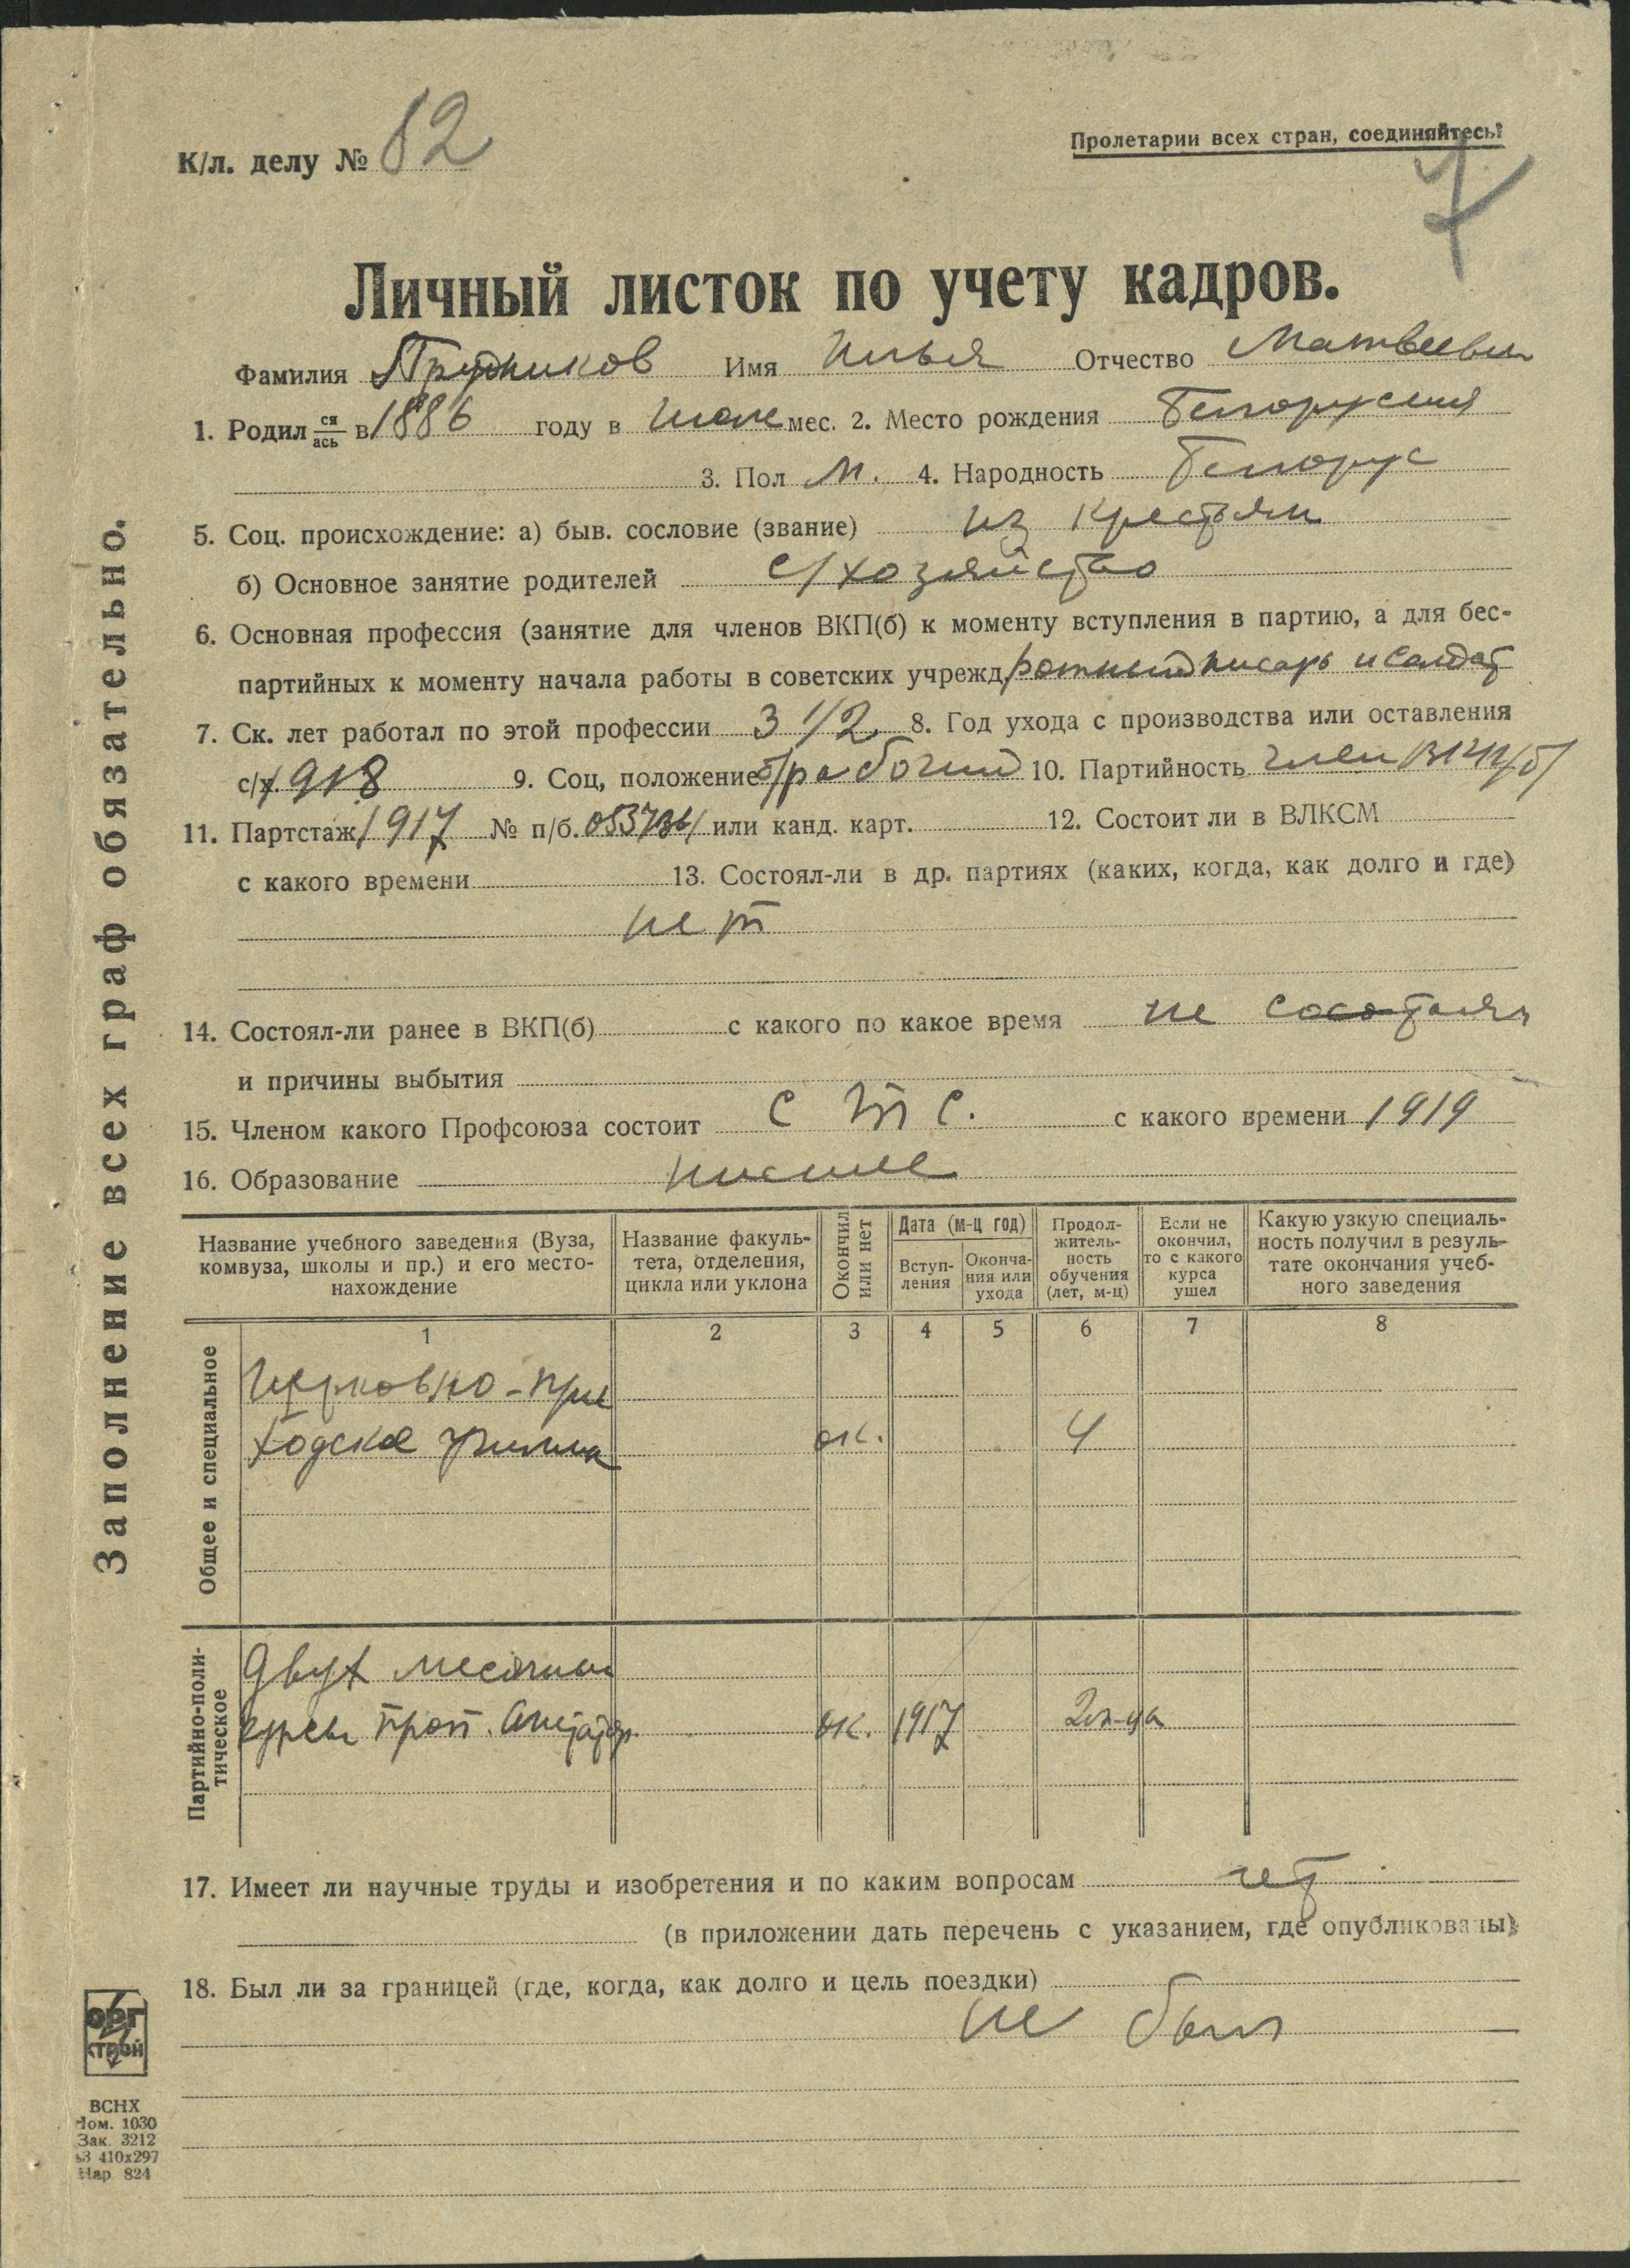 К/л. делу № 82
Пролетарии всех стран, соединяйтесь!
7
Личный листок по учету кадров.
Фамилия Прудников Имя Илья Отчество Матвеевич
1. Родил ся/ась в 1886 году в июле мес. 2. Место рождения Белоруссия
3. Пол м. 4. Народность Белорус
5. Соц. происхождение: а) быв. сословие (звание) из крестьян
б) Основное занятие родителей с/хозяйство
6. Основная профессия (занятие для членов ВКП(б) к моменту вступления в партию, а для бес-
партийных к моменту начала работы в советских учрежд. ротный писарь и солдат
7. Ск. лет работал по этой профессии 3 1/2 8. Год ухода с производства или оставления
с/х. 1918 9. Соц, положение рабочий 10. Партийность член ВКП/б/
11. Партстаж 1917 № п/б. или канд. карт. 12. Состоит ли в ВЛКСМ
с какого времени 13. Состоял-ли в др. партиях (каких, когда, как долго и где)
нет
14. Состоял-ли ранее в ВКП(б) с какого по какое время не
и причины выбытия
15. Членом какого Профсоюза состоит С Т С. с какого времени 1919
16. Образование низшее
Название учебного заведения (Вуза, комвуза, школы и пр.) и его место-нахождение
Название факуль-тета, отделения, цикла или уклона
Окончил или нет
Дата (м-ц год)
Вступ-ления
Оконча-ния или ухода
Продол-житель-ность обучения (лет, м-ц)
Если не окончил, то с какого курса ушел
Какую узкую специаль-ность получил в резуль-тате окончания учеб-ного заведения
1 2 3 4 5 6 7 8
Общее и специальное
Церковно-при
ходское ок. 4
Партийно-поли-тическое
Двух месячные
курсы проп. Агитатор. ок. 1917 2 м-ца
17. Имеет ли научные труды и изобретения и по каким вопросам нет
(в приложении дать перечень с указанием, где опубликованы)
18. Был ли за границей (где, когда, как долго и цель поездки)
не был
Заполнение всех граф обязательно.
ОРГ
СТРОЙ
ВСНХ
Ном. 1030
Зак. 3212
410х297
Нар 824